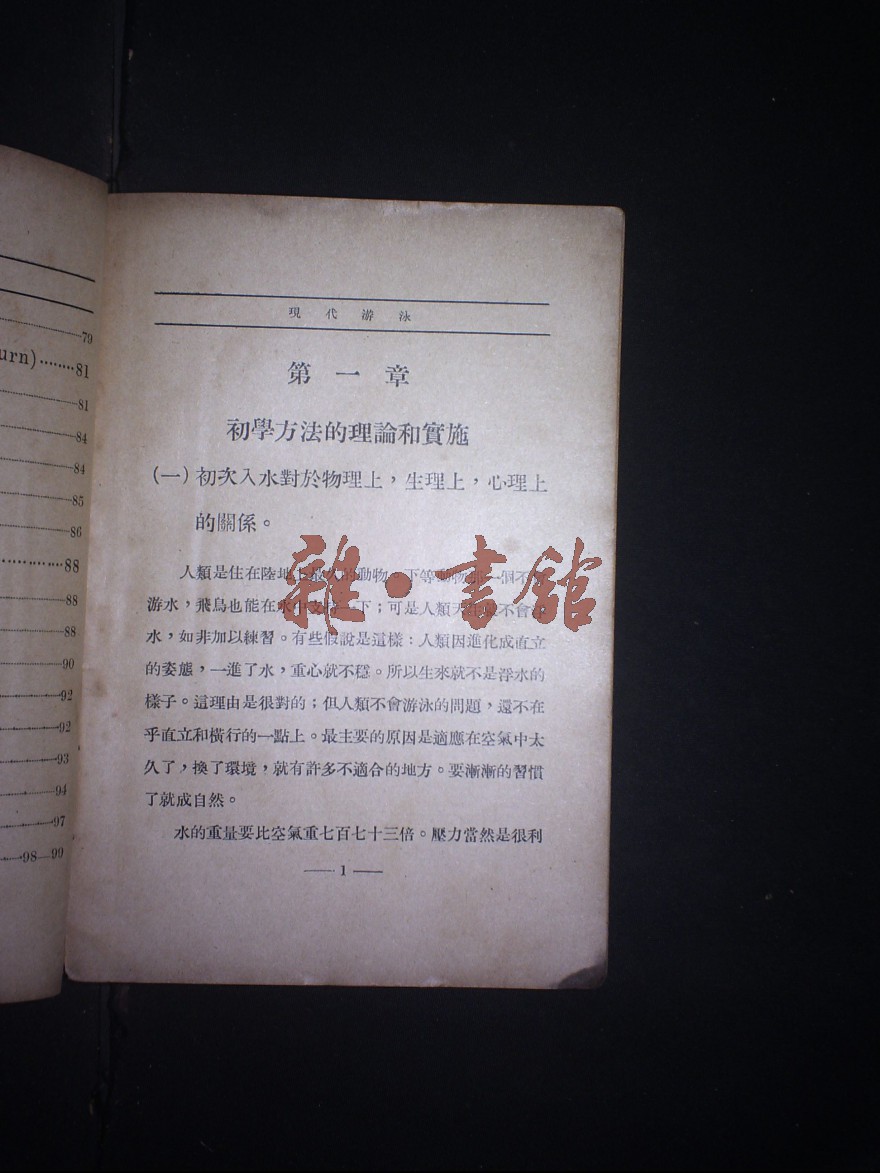 79
urn)........81
81
84
84
85
86
88
88
88
90
92
92
93
94
97
98—99
現代游泳
第一章
初學方法的理論和實施
(一)初次入水對於物理上，生理上，心理上
的關係。
雜·書館
人類是住在陸地上最久的動物。下等動物 一個不
游水，飛鳥也能在水中支持一下；可是人類天 不會
水，如非加以練習。有些假說是這樣：人類因進化成直立
的姿態，一進了水，重心就不穩。所以生來就不是浮水的
樣子。這理由是很對的；但人類不會游泳的問題，還不在
乎直立和橫行的一點上。最主要的原因是適應在空氣中太
久了，換了環境，就有許多不適合的地方。要漸漸的習慣
了就成自然。
水的重量要比空氣重七百七十三倍。壓力當然是很利
— 1 —